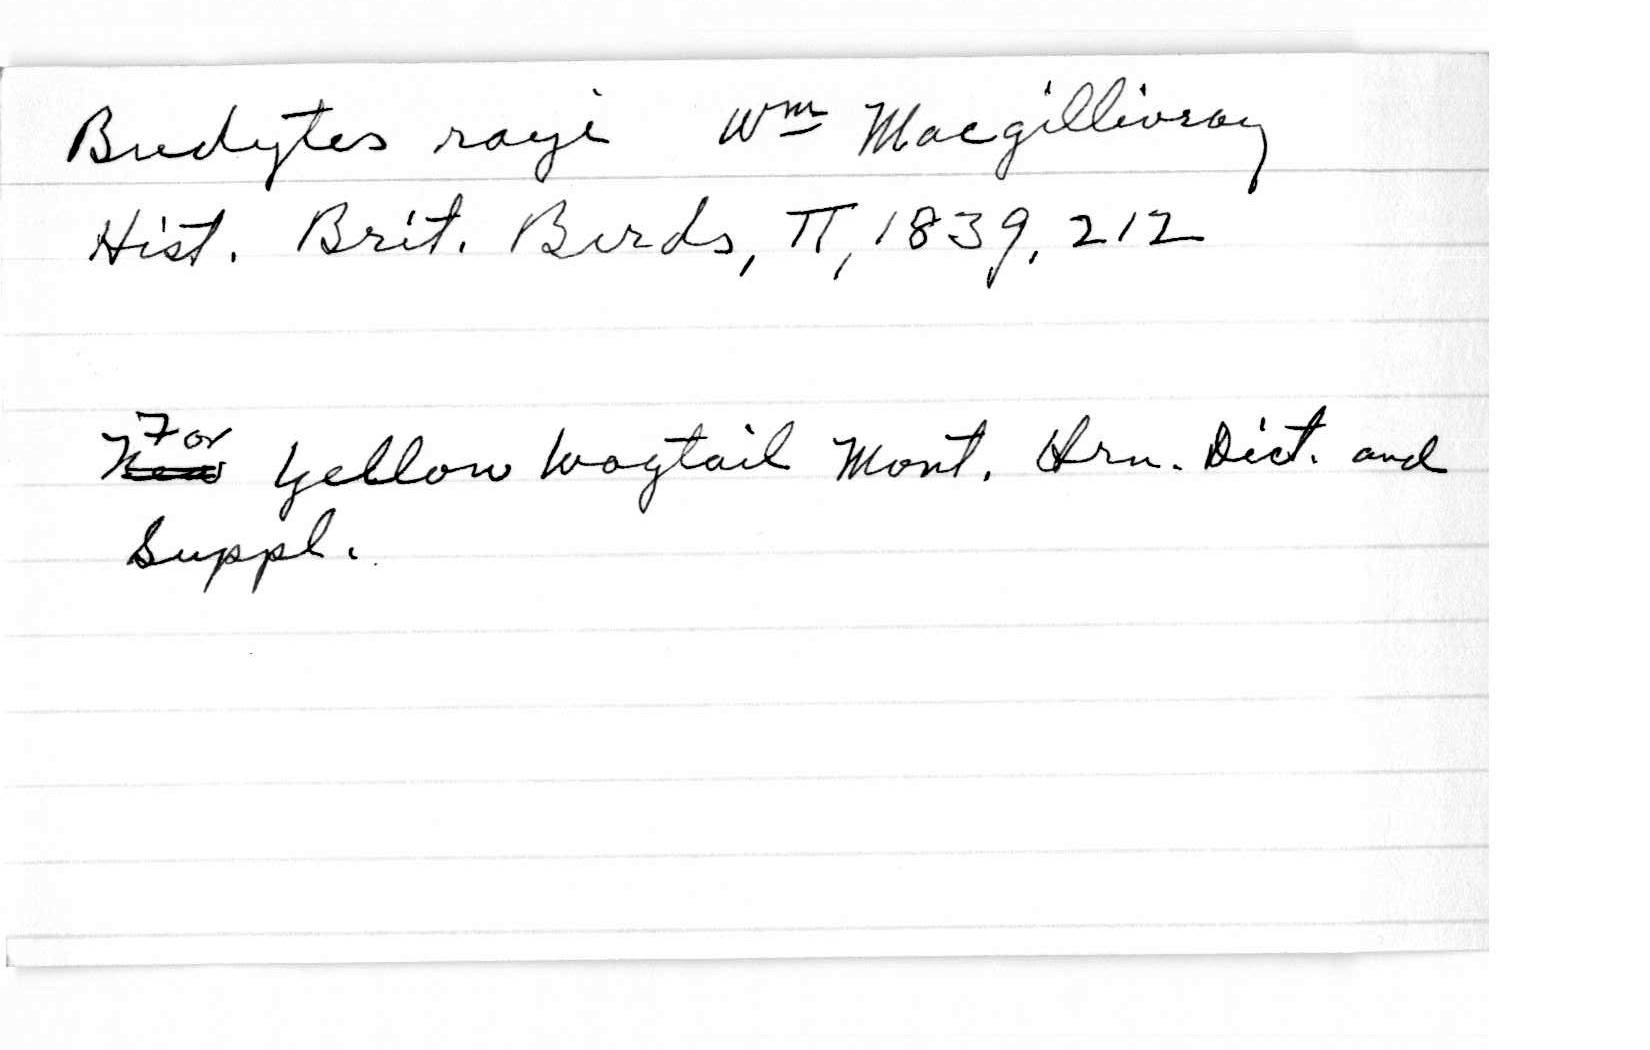 Budytes rayi Wm Macgillivray
Hist. Brit. Birds, II, 1839, 212
For Yellow Wagtail Mont. Orn. Dict. and
Suppl.